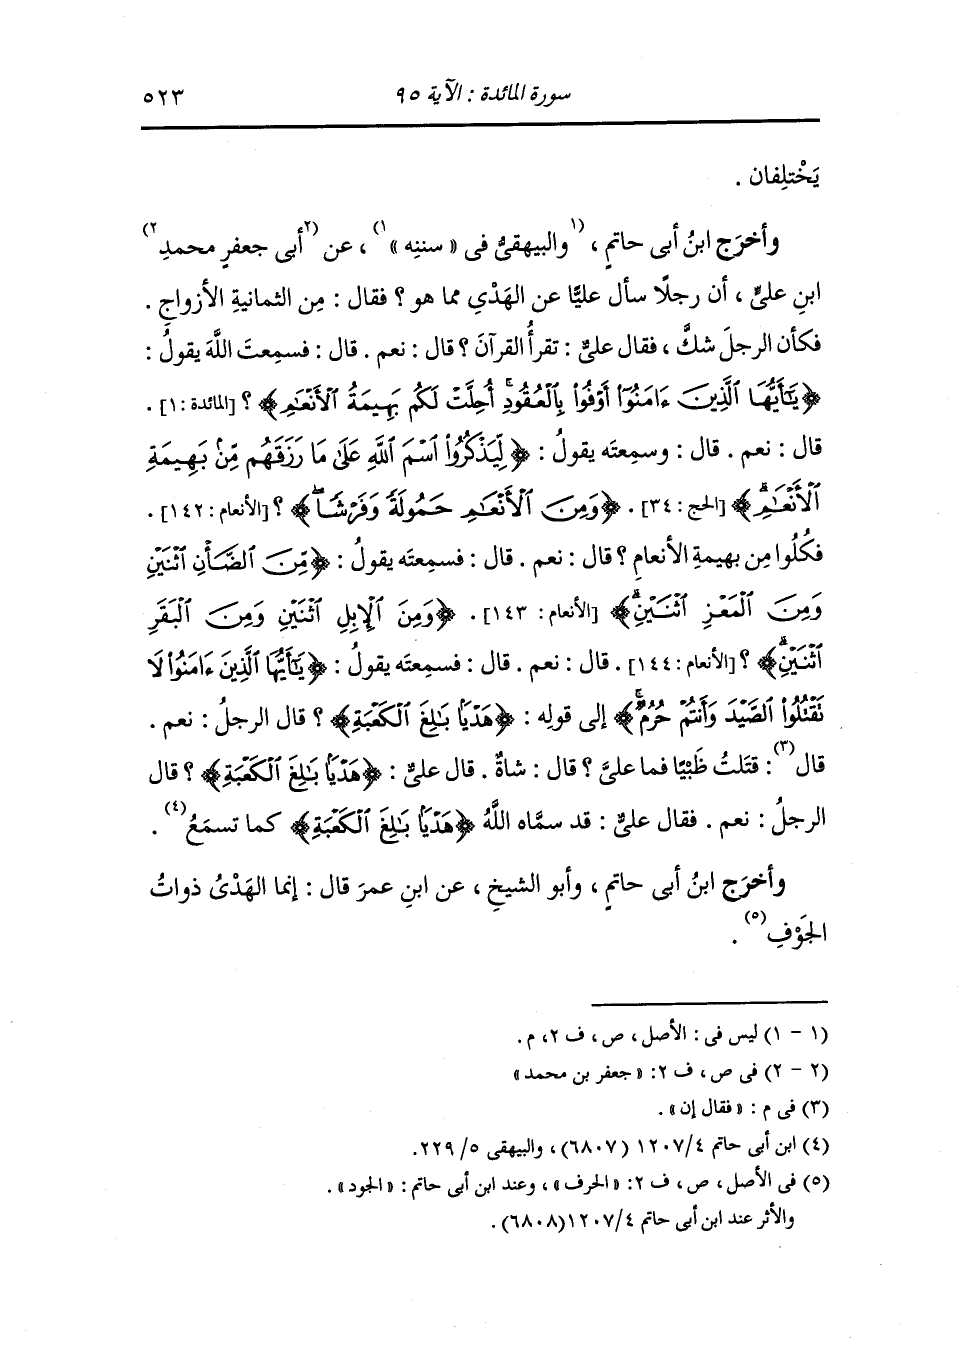 سورة المائدة : الآية ٩٥ ٥٢٣
يَخْتلِفان .
وأخرَج ابنُ أبى حاتمٍ ، (١والبيهقىُّ فى « سننِه »١) ، عن (٢أبى جعفرٍ محمدِ٢)
ابنِ علىٍّ ، أن رجلًا سأل عليًّا عن الهَدْيِ مما هو ؟ فقال : مِن الثمانيةِ الأزواجِ .
فكأن الرجلَ شكَّ ، فقال علىٌّ : تقرأُ القرآنَ ؟ قال : نعم . قال : فسمِعتَ اللَّهَ يقولُ :
﴿يَٰٓأَيُّهَا ٱلَّذِينَ ءَامَنُوٓا۟ أَوْفُوا۟ بِٱلْعُقُودِ ۚ أُحِلَّتْ لَكُم بَهِيمَةُ ٱلْأَنْعَٰمِ﴾ ؟ [المائدة : ١] .
قال : نعم . قال : وسمِعتَه يقولُ : ﴿لِّيَذْكُرُوا۟ ٱسْمَ ٱللَّهِ عَلَىٰ مَا رَزَقَهُم مِّنۢ بَهِيمَةِ
ٱلْأَنْعَٰمِ ۗ﴾ [الحج : ٣٤] . ﴿وَمِنَ ٱلْأَنْعَٰمِ حَمُولَةً وَفَرْشًا ۚ﴾ ؟ [الأنعام : ١٤٢] .
فكُلُوا مِن بهيمةِ الأنعامِ ؟ قال : نعم . قال : فسمِعتَه يقولُ : ﴿مِّنَ ٱلضَّأْنِ ٱثْنَيْنِ
وَمِنَ ٱلْمَعْزِ ٱثْنَيْنِ ۗ﴾ [الأنعام : ١٤٣] . ﴿وَمِنَ ٱلْإِبِلِ ٱثْنَيْنِ وَمِنَ ٱلْبَقَرِ
ٱثْنَيْنِ ۗ﴾ ؟ [الأنعام : ١٤٤] . قال : نعم . قال : فسمِعتَه يقولُ : ﴿يَٰٓأَيُّهَا ٱلَّذِينَ ءَامَنُوا۟ لَا
تَقْتُلُوا۟ ٱلصَّيْدَ وَأَنتُمْ حُرُمٌ ۚ﴾ إلى قولِه : ﴿هَدْيًۢا بَٰلِغَ ٱلْكَعْبَةِ﴾ ؟ قال الرجلُ : نعم .
قال(٣) : قتَلتُ ظَبْيًا فما علىَّ ؟ قال : شاةٌ . قال علىٌّ : ﴿هَدْيًۢا بَٰلِغَ ٱلْكَعْبَةِ﴾ ؟ قال
الرجلُ : نعم . فقال علىٌّ : قد سمَّاه اللَّهُ ﴿هَدْيًۢا بَٰلِغَ ٱلْكَعْبَةِ﴾ كما تسمَعُ(٤) .
وأخرَج ابنُ أبى حاتمٍ ، وأبو الشيخِ ، عن ابنِ عمرَ قال : إنما الهَدْىُ ذواتُ
الجَوْفِ(٥) .
(١ - ١) ليس فى : الأصل ، ص ، ف ٢، م .
(٢ - ٢) فى ص ، ف ٢: « جعفر بن محمد »
(٣) فى م : « فقال إن » .
(٤) ابن أبى حاتم ٤/ ١٢٠٧ (٦٨٠٧) ، والبيهقى ٥/ ٢٢٩.
(٥) فى الأصل ، ص ، ف ٢: « الحرف » ، وعند ابن أبى حاتم : « الجود » .
والأثر عند ابن أبى حاتم ٤/ ١٢٠٧(٦٨٠٨) .